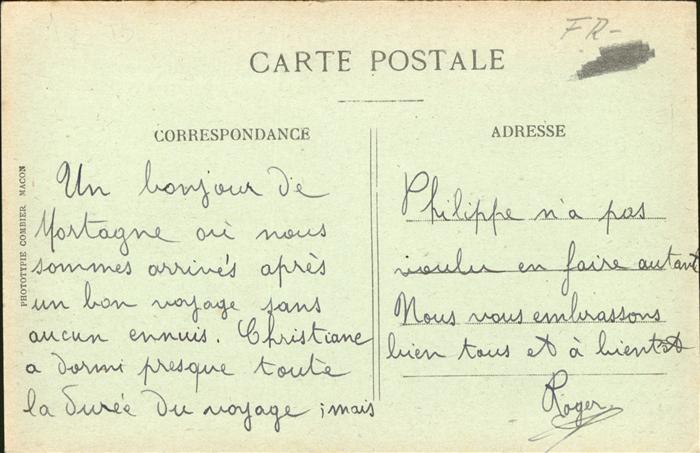 FR-
CARTE POSTALE
CORRESPONDANCE
ADRESSE
PHOTOTYPIE COMBIER MACON
Un bonjour de
Mortagne où nous
sommes arrivés après
un bon voyage sans
aucun ennuis. Christiane
a dormi presque toute
la durée du voyage ; mais
Philippe n'a pas
voulu en faire autant
Nous vous embrassons
bien tous et à bientot
Roger